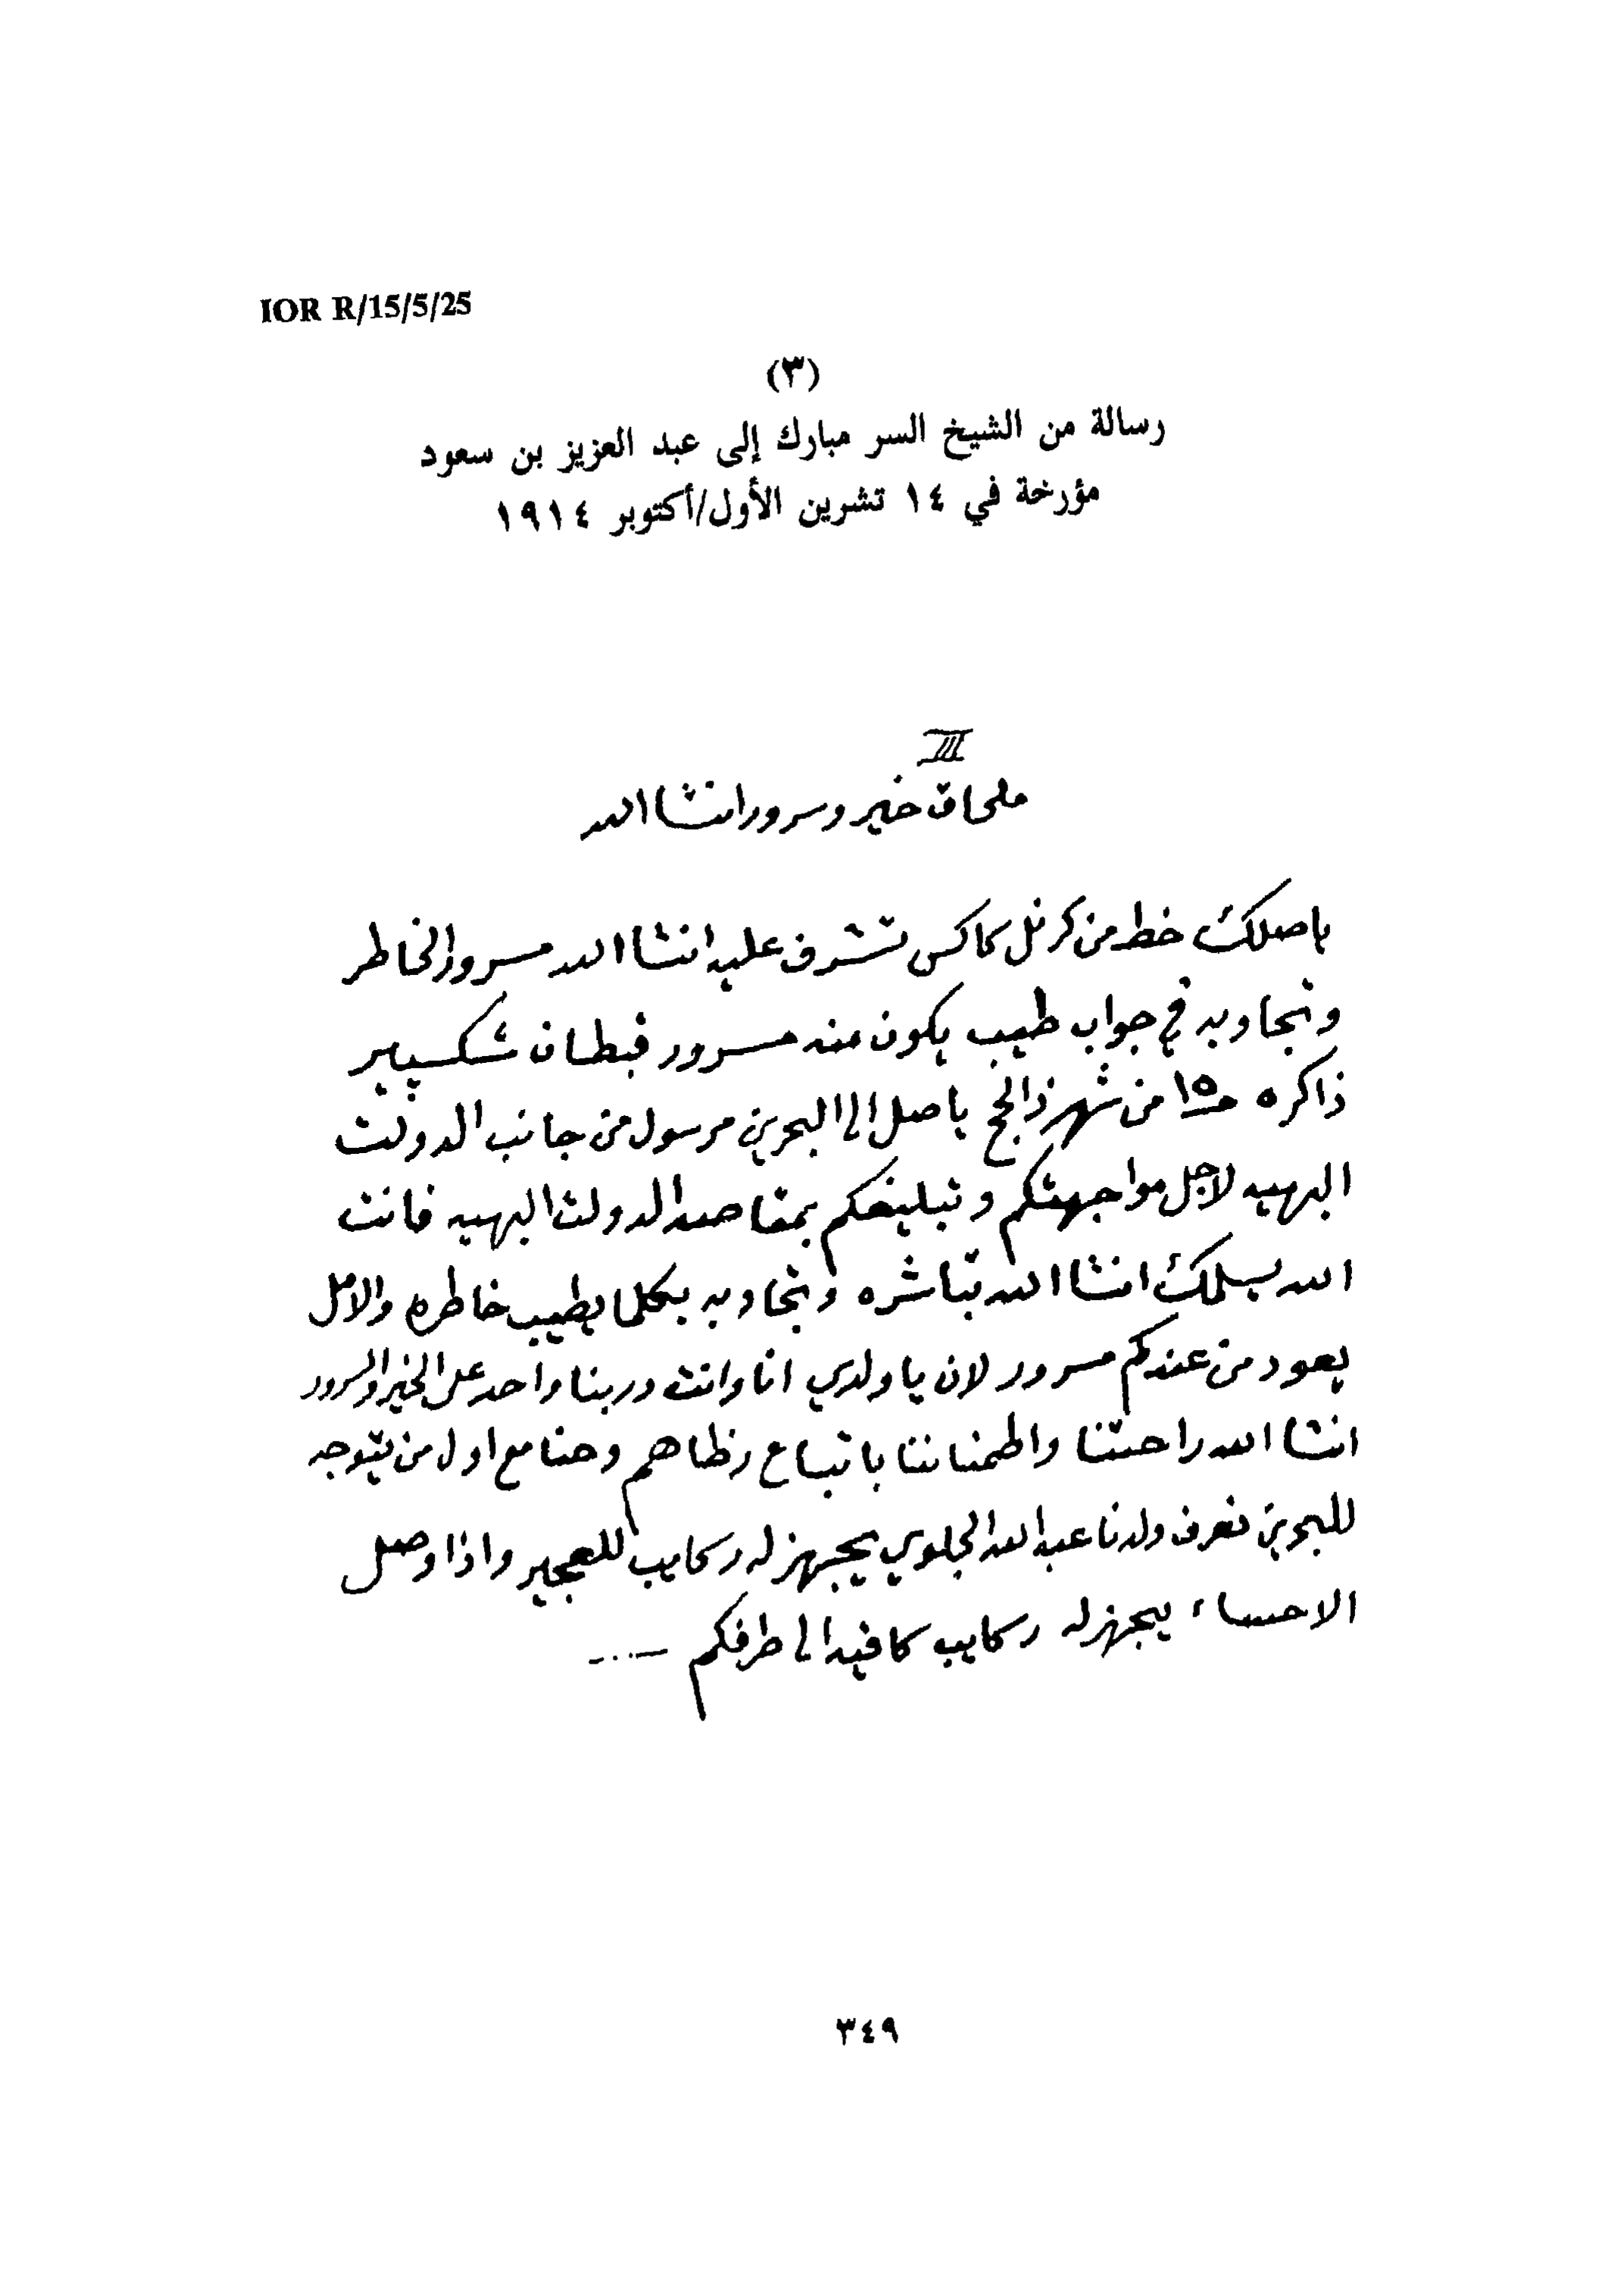 IOR R/15/5/25
(٣)
رسالة من الشيخ السر مبارك إلى عبد العزيز بن سعود
مؤرخة في ١٤ تشرين الأول/أكتوبر ١٩١٤
III
ملحاق خير وسرور انشا الله
ياصلك خط من كرنل كاكس تشرف عليه انشا الله مسرور الخاطر
وتجاوبه في جواب طيب يكون منه مسرور قبطان شكسپير
ذاكره ١٥ من شهر ذالحج ياصل الى البحرين مرسول من جانب الدولت
البهيه لاجل مواجهتكم وتبليغكم بمقاصد الدولت البهيه فانت
الله يسلمك انشا الله تباشره وتجاوبه بكلما يطيب خاطره والامل
يعود من عندكم مسرور لان يا ولدي انا وانت دربنا واحد على الخير والسرور
انشا الله راحتنا واطمناننا باتباع رظاهم وحنا مع اول من يتوجه
للبحرين نعرف ولدنا عبد الله الجلوي يجهز له ركايب للعجير واذا وصل
الاحساء يجهز له ركايب كافيه الى طرفكم
٣٤٩